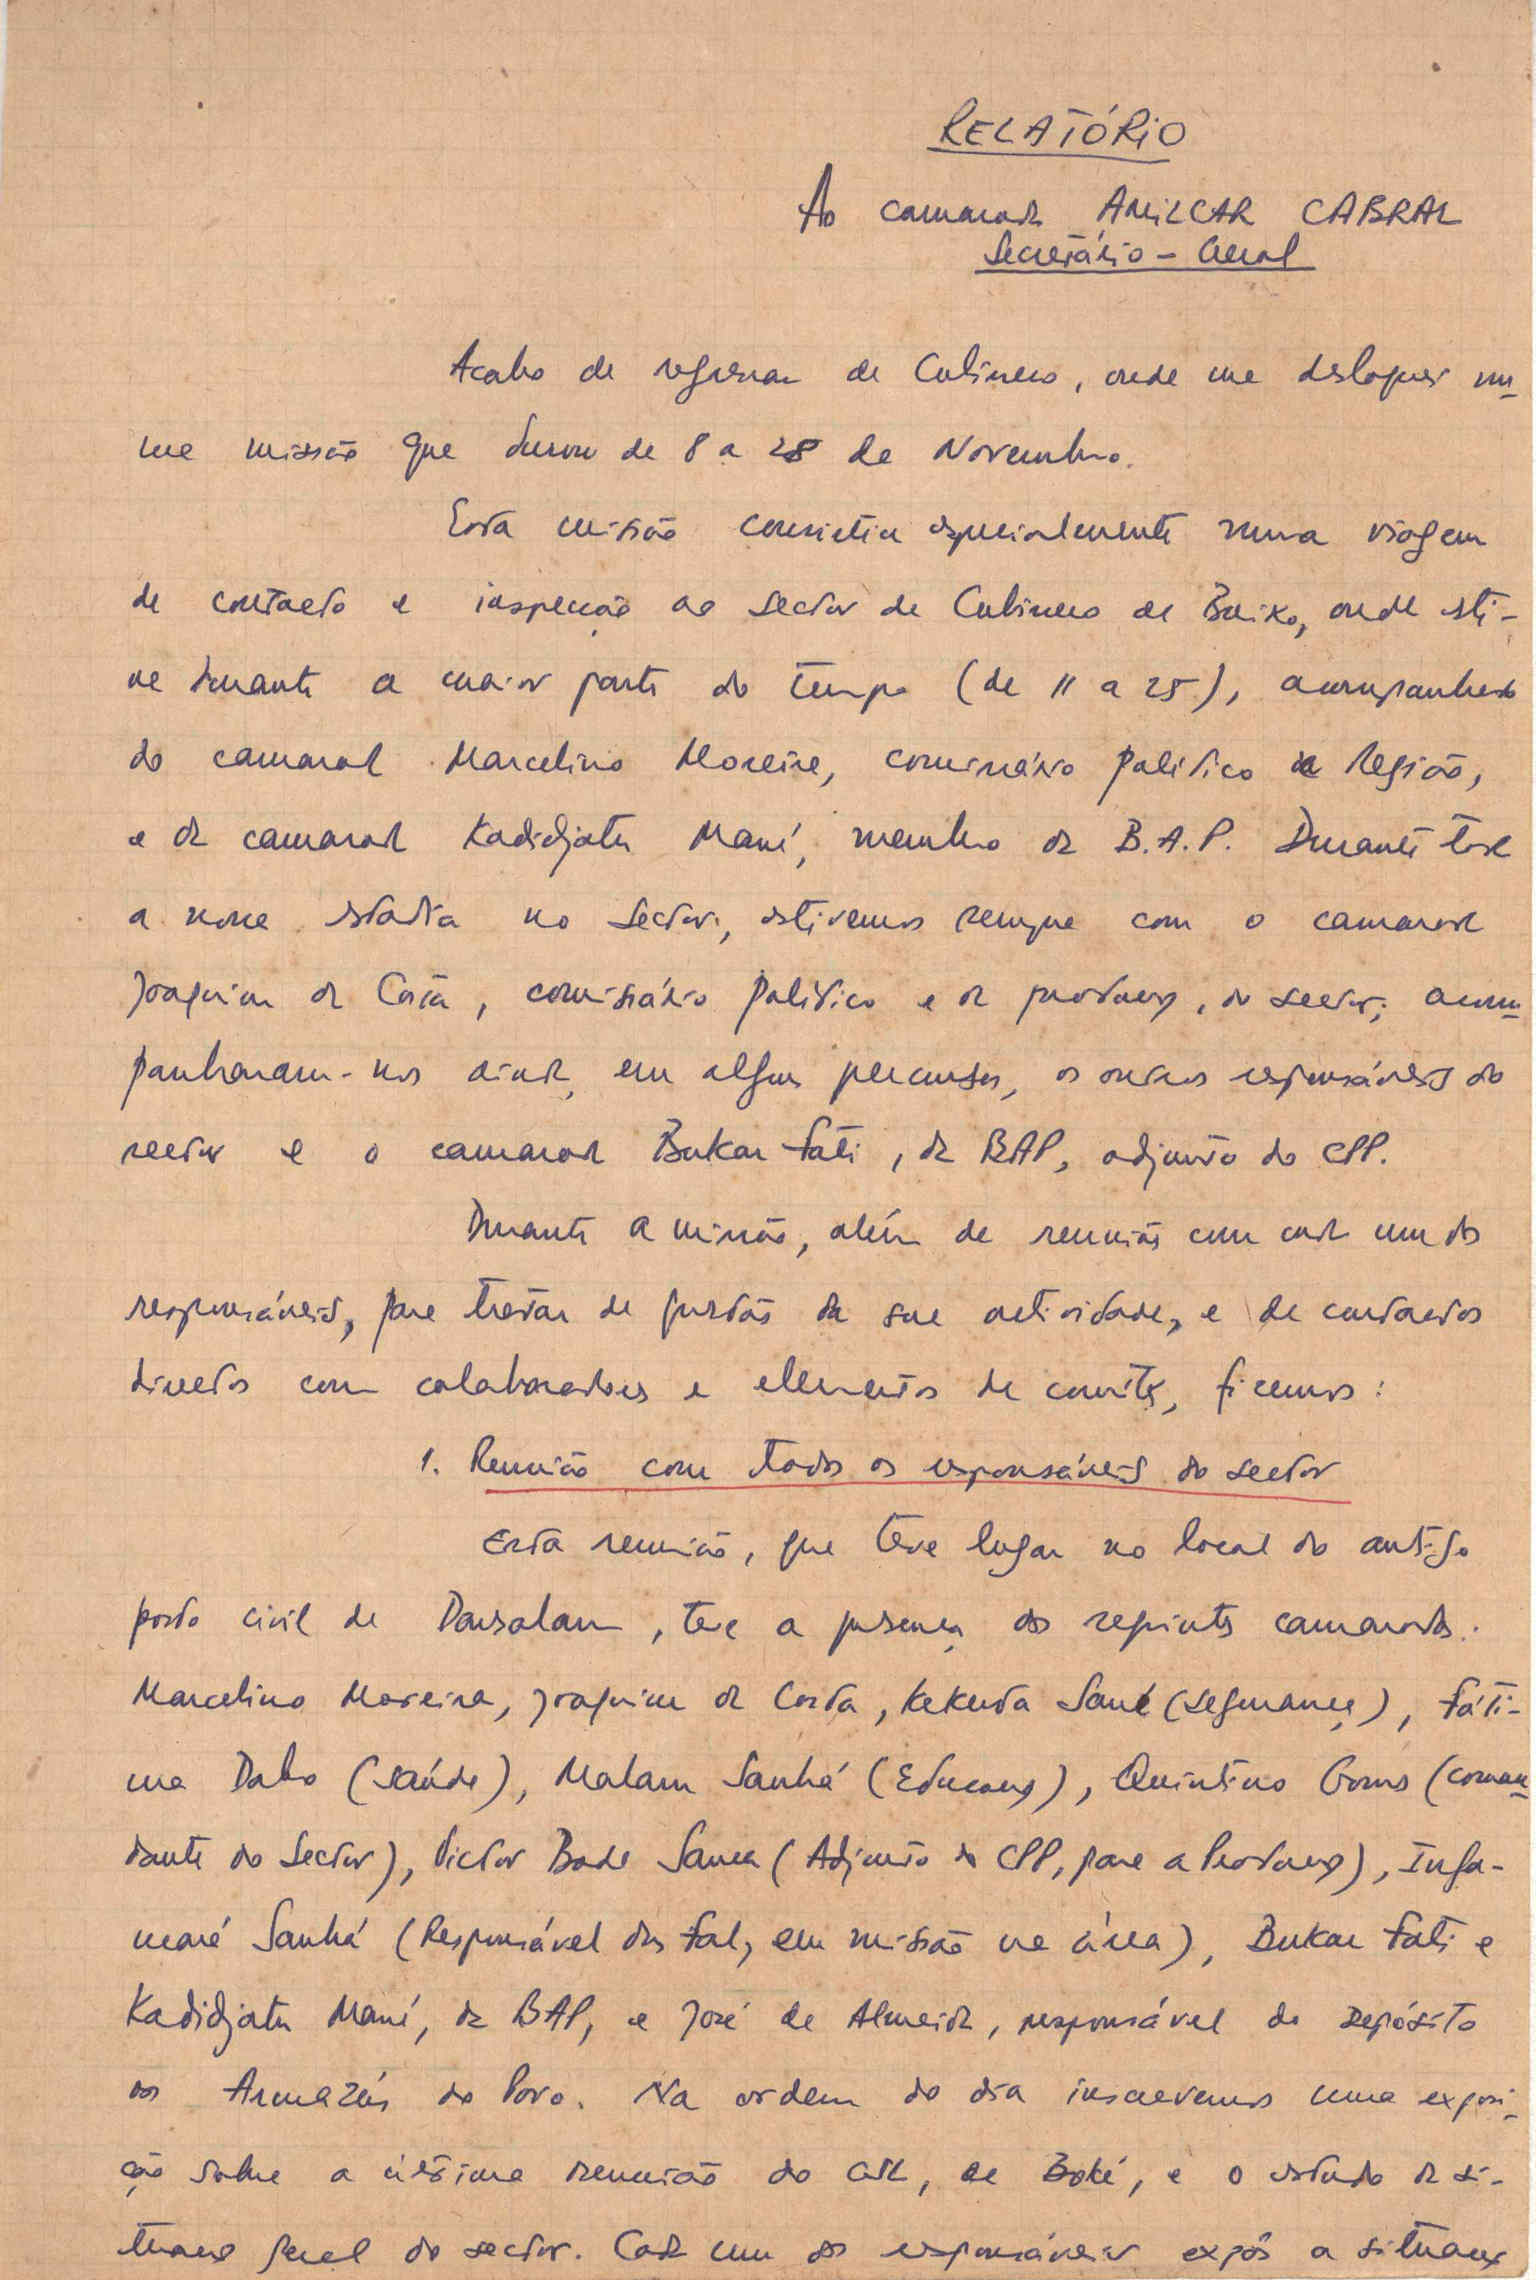 RELATÓRIO
Ao camarada AMILCAR CABRAL
Secretário-Geral
Acabo de regressar de Cubisseco, onde me desloquei nu-
ma missão que durou de 8 a 28 de Novembro.
Esta missão consistiu especialmente numa viagem
de contacto e inspecção ao sector de Cubisseco de Baixo, onde esti-
ve durante a maior parte do tempo (de 11 a 25), acompanhado
do camarada Marcelino Moreira, comissário político da Região,
e da camarada Kadidjatu Mané, membro da B.A.P. Durante toda
a nossa estadia no sector, estivemos sempre com o camarada
Joaquim da Costa, comissário político e da produção, do sector; acom-
panharam-nos ainda, em alguns percursos, os outros responsáveis do
sector e o camarada Bukar Fati, da BAP, adjunto do CPP.
Durante a missão, além de reuniões com cada um dos
responsáveis, para tratar de questões da sua actividade, e de contactos
directos com colaboradores e elementos de comités, fizemos:
1. Reunião com todos os responsáveis do sector
Esta reunião, que teve lugar no local do antigo
posto civil de Darsalam, teve a presença dos seguintes camaradas:
Marcelino Moreira, Joaquim da Costa, Kekuta Sané (segurança), Fáti-
ma Dabo (saúde), Malam Sanhá (Educação), Quintino Gomes (coman-
dante do Sector), Victor Bode Sanca (Adjunto do CPP, para a Produção), Infa-
maré Sanhá (Responsável das Fal, em missão na área), Bukar Fati e
Kadidjatu Mané, da BAP, e José de Almeida, responsável do Depósito
dos Armazéns do Povo. Na ordem do dia inscrevemos uma exposi-
ção sobre a última reunião do CSL, de Boké, e o estudo da si-
tuação geral do sector. Cada um dos responsáveis expôs a situação